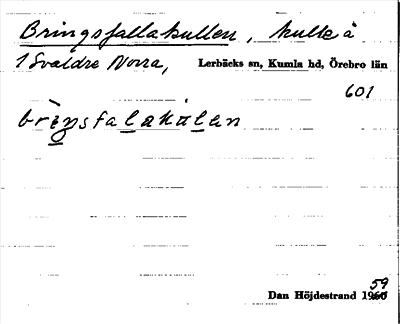 Bringsfallakullen, kulle å
1 Svaldre Norra, Lerbäcks sn, Kumla hd, Örebro län
601
Dan Höjdestrand 1959